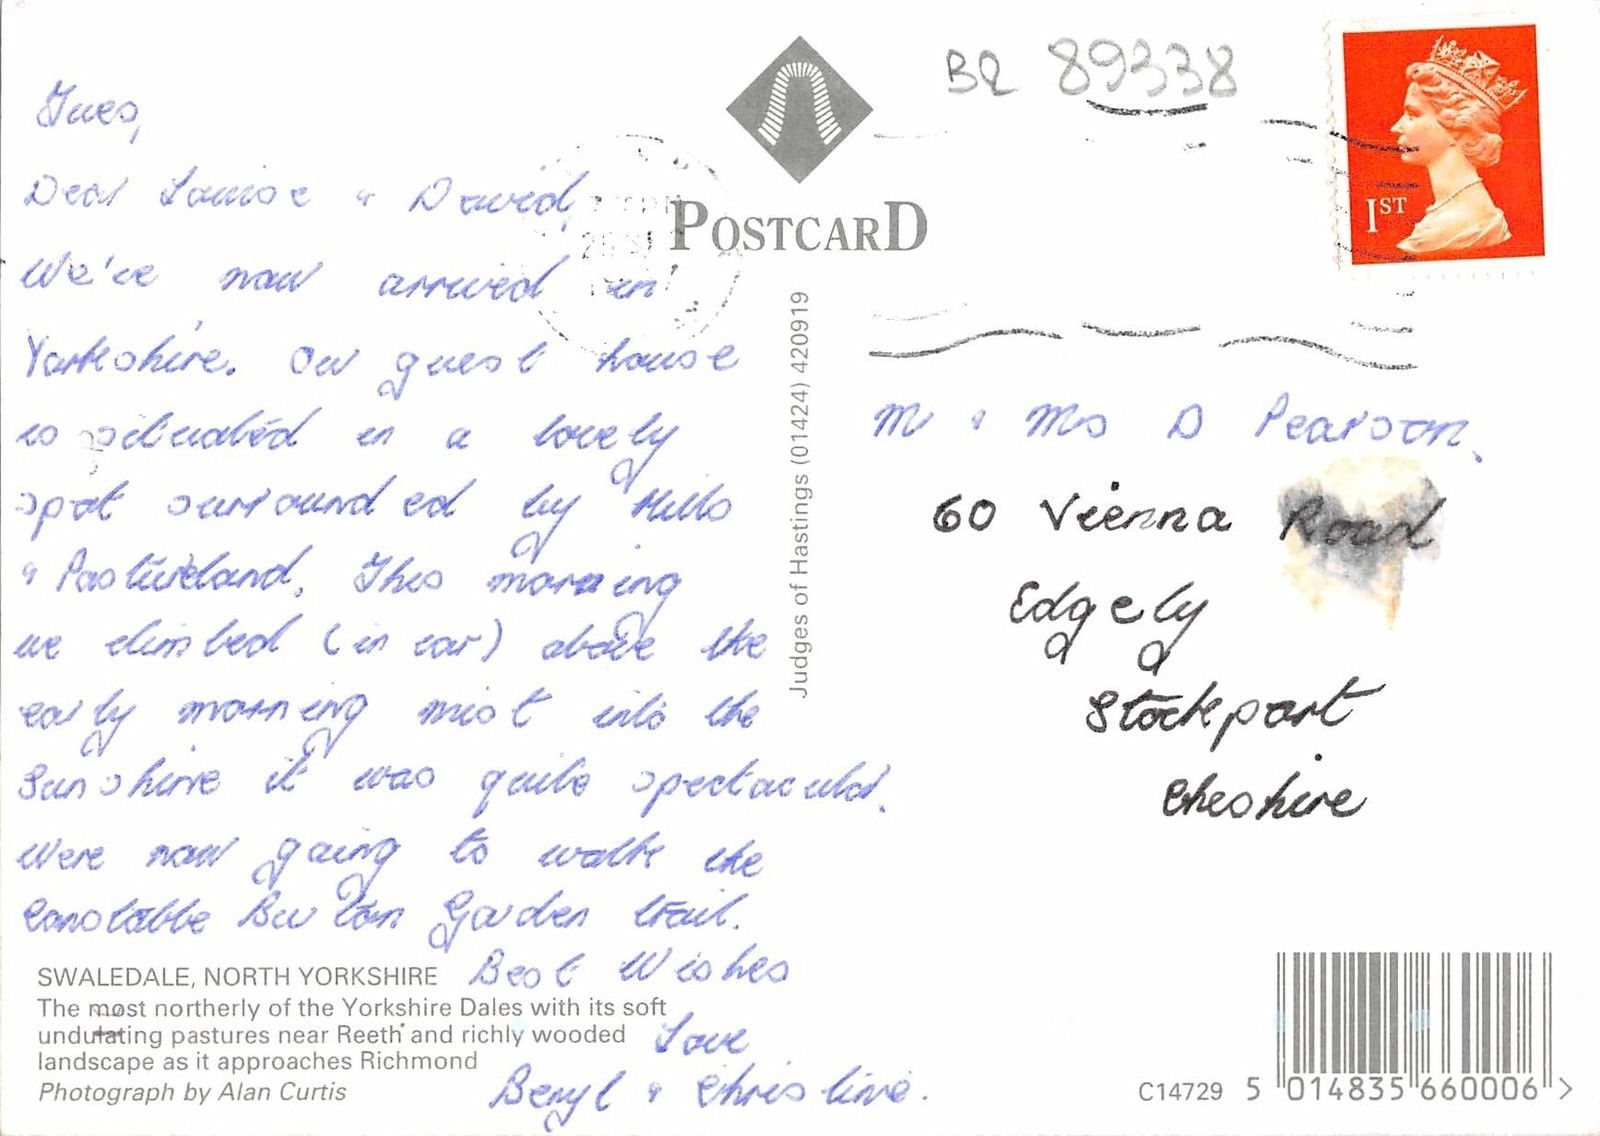 Tues,
Dear Louise & David,
We've now arrived in
Yorkshire. Our guest house
is situated in a lovely
spot surrounded by Hills
& Pastureland. This morning
we climbed (in car) above the
early morning mist into the
Sunshine it was quite spectacular.
Were now going to walk the
Constable Burton Garden trail.
Best Wishes
Love
Beryl & Christine.
SWALEDALE, NORTH YORKSHIRE
The most northerly of the Yorkshire Dales with its soft
undulating pastures near Reeth and richly wooded
landscape as it approaches Richmond
Photograph by Alan Curtis
POSTCARD
Judges of Hastings (01424) 420919
B2 89338
1ST
Mr & Mrs D Pearson,
60 Vienna Road
Edgely
Stockport
Cheshire
C14729 5 014835 660006 >